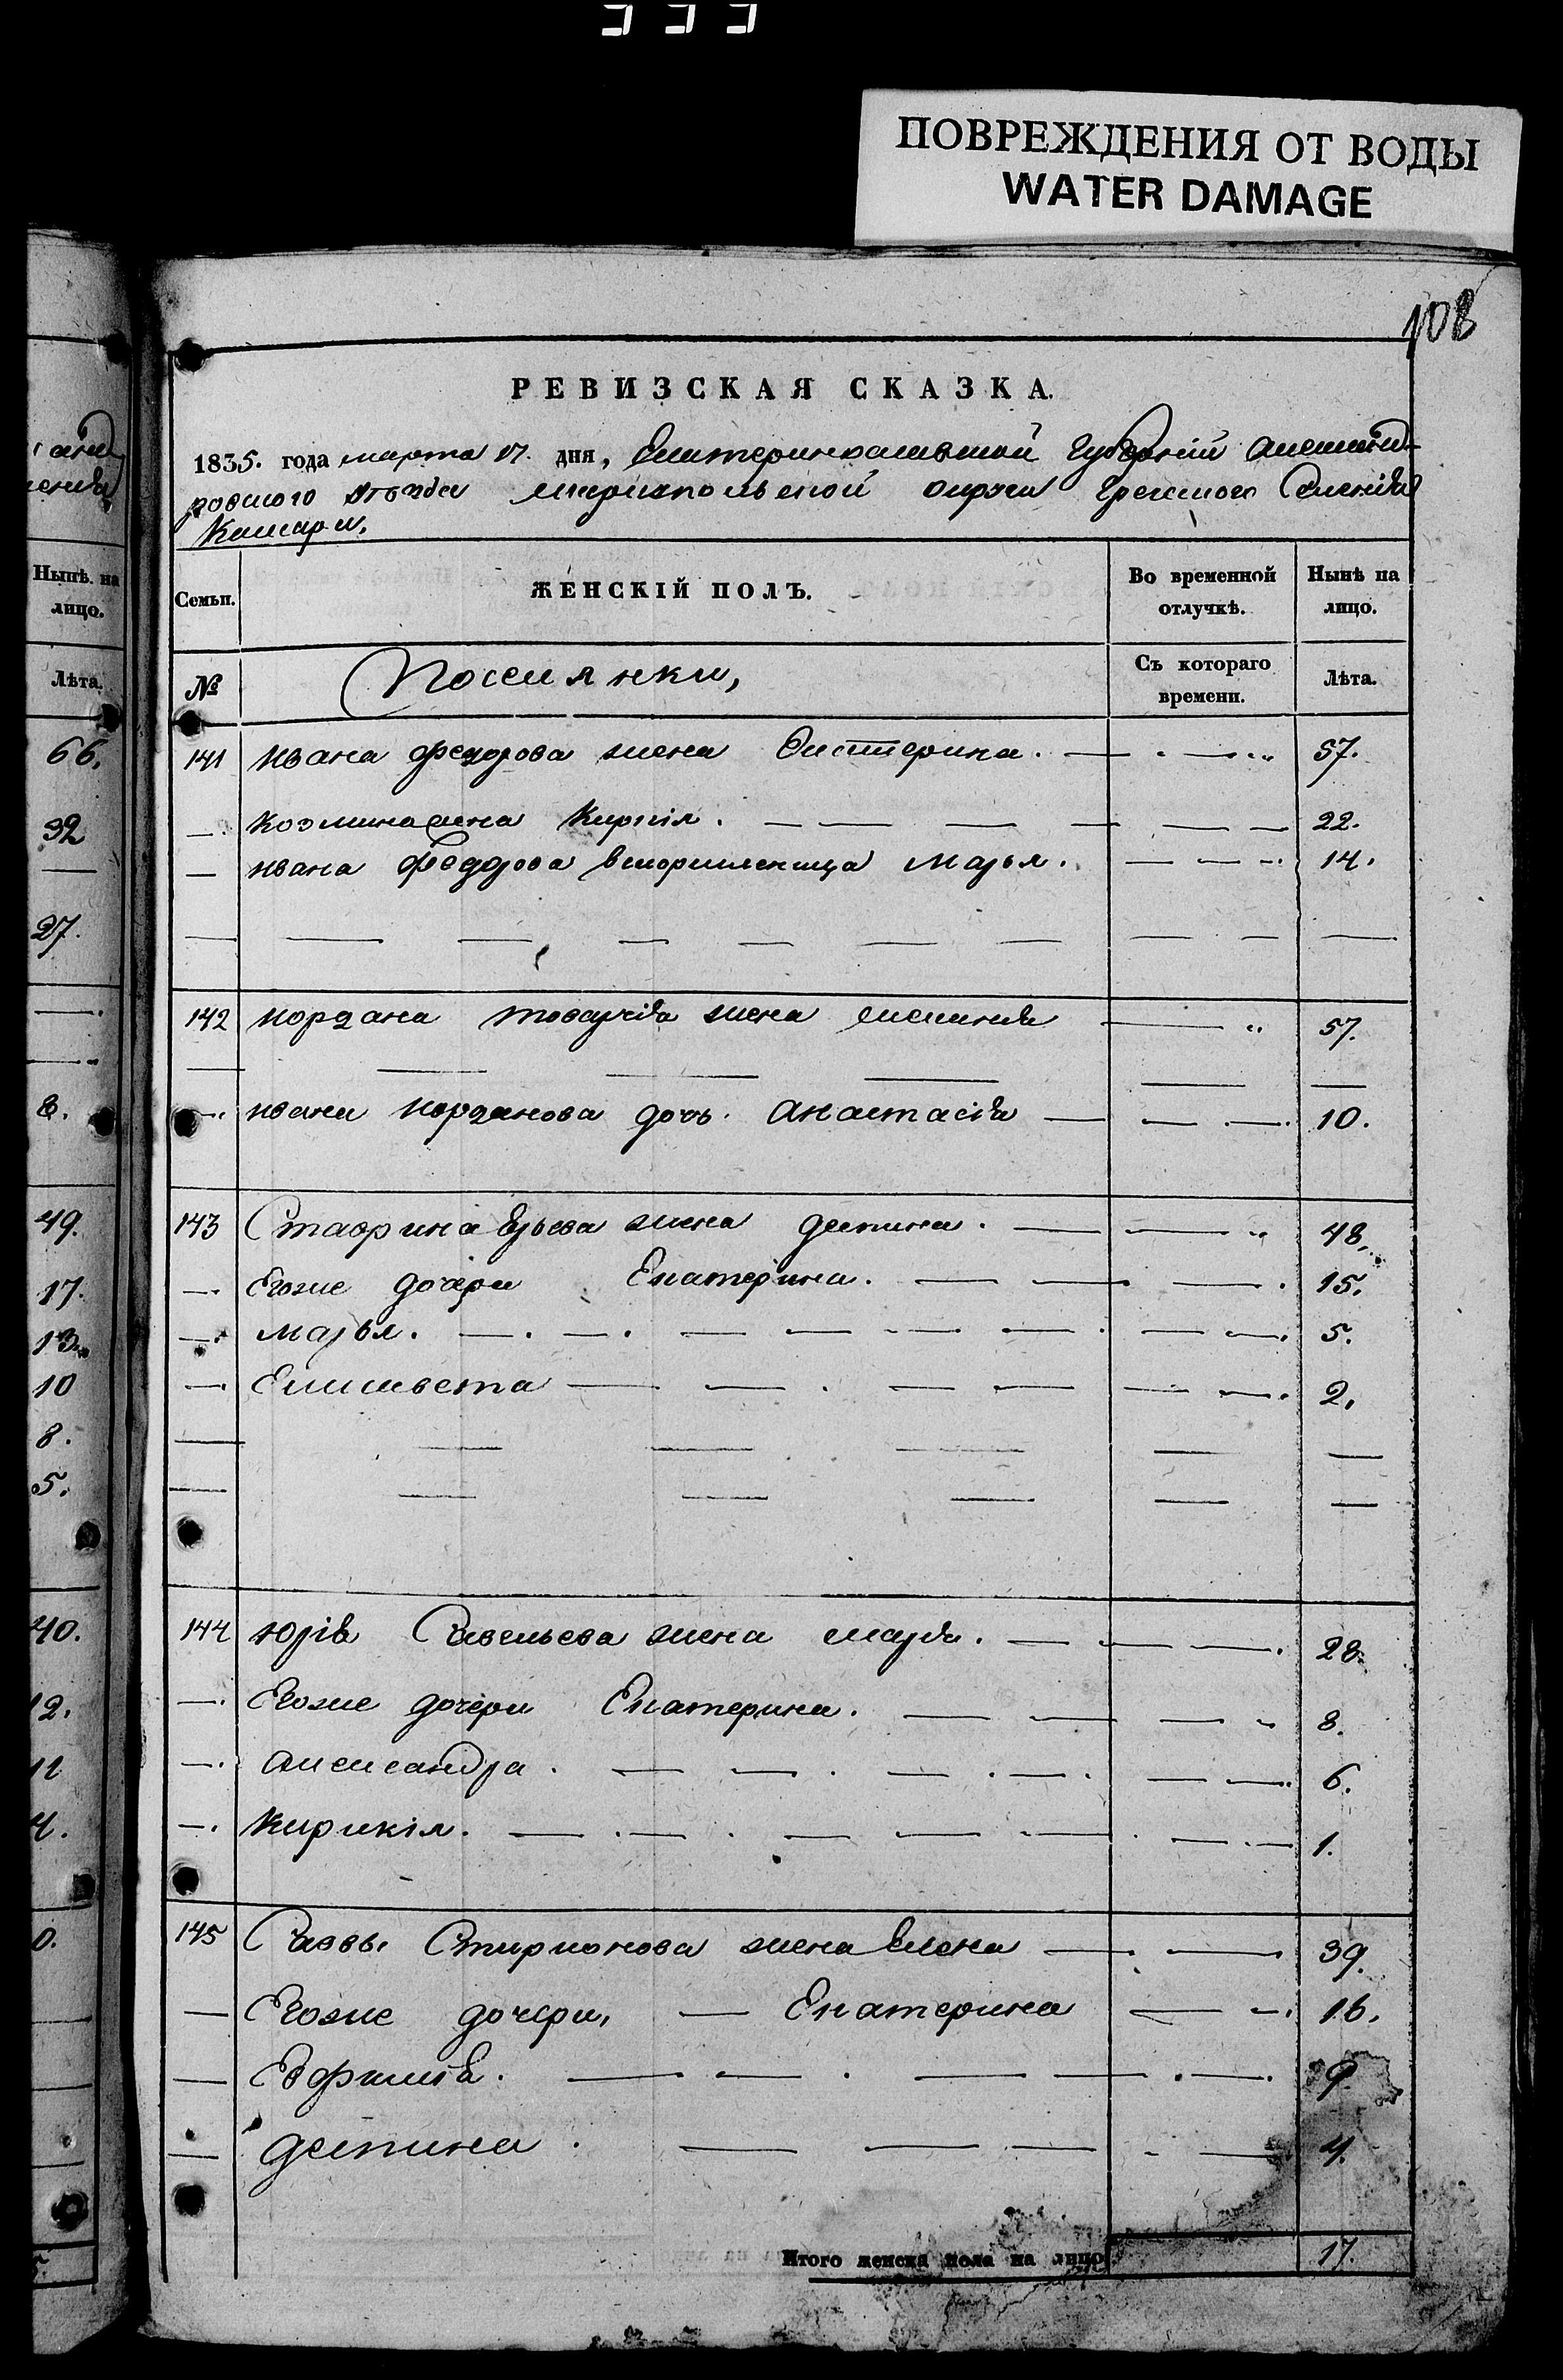 ПОВРЕЖДЕНИЯ ОТ ВОДЫ
WATER DAMAGE
108
РЕВИЗСКАЯ СКАЗКА.
1835. года марта 17. дня, Екатеринославской Губерніи Александ-
ровского уѣзда Мариупольской округи греческого Селенія
Камари.
Нынѣ. на
лицо.
Лѣта.
66.
32
27.
8.
49.
17.
13.
10
8.
5.
40.
12.
11
4.
0.
5.
Семьи. ЖЕНСКІЙ ПОЛЪ. Во временной отлучкѣ. Нынѣ на лицо.
№ Поселянки, Съ котораго времени. Лѣта.
141 ивана федорова жена Екатерина. 57.
— козмина жена 22.
— ивана федорова марья. 14.
142 иордана жена 57.
— ивана иорданова дочь. анастасія 10.
143 Ставрина жена деспина. 48.
— Егоже дочери Екатерина. 15.
— марья. 5.
— Елисавета 2.
144 юрія Савельева жена марія. 28.
— Егоже дочери Екатерина. 8.
— александра. 6.
— Кирикія. 1.
145 Саввы Спирионова жена Елена 39.
— Егоже дочери, — Екатерина 16.
— Евфимія. 9.
— деспина. 4.
Итого женска пола на лицо. 17.